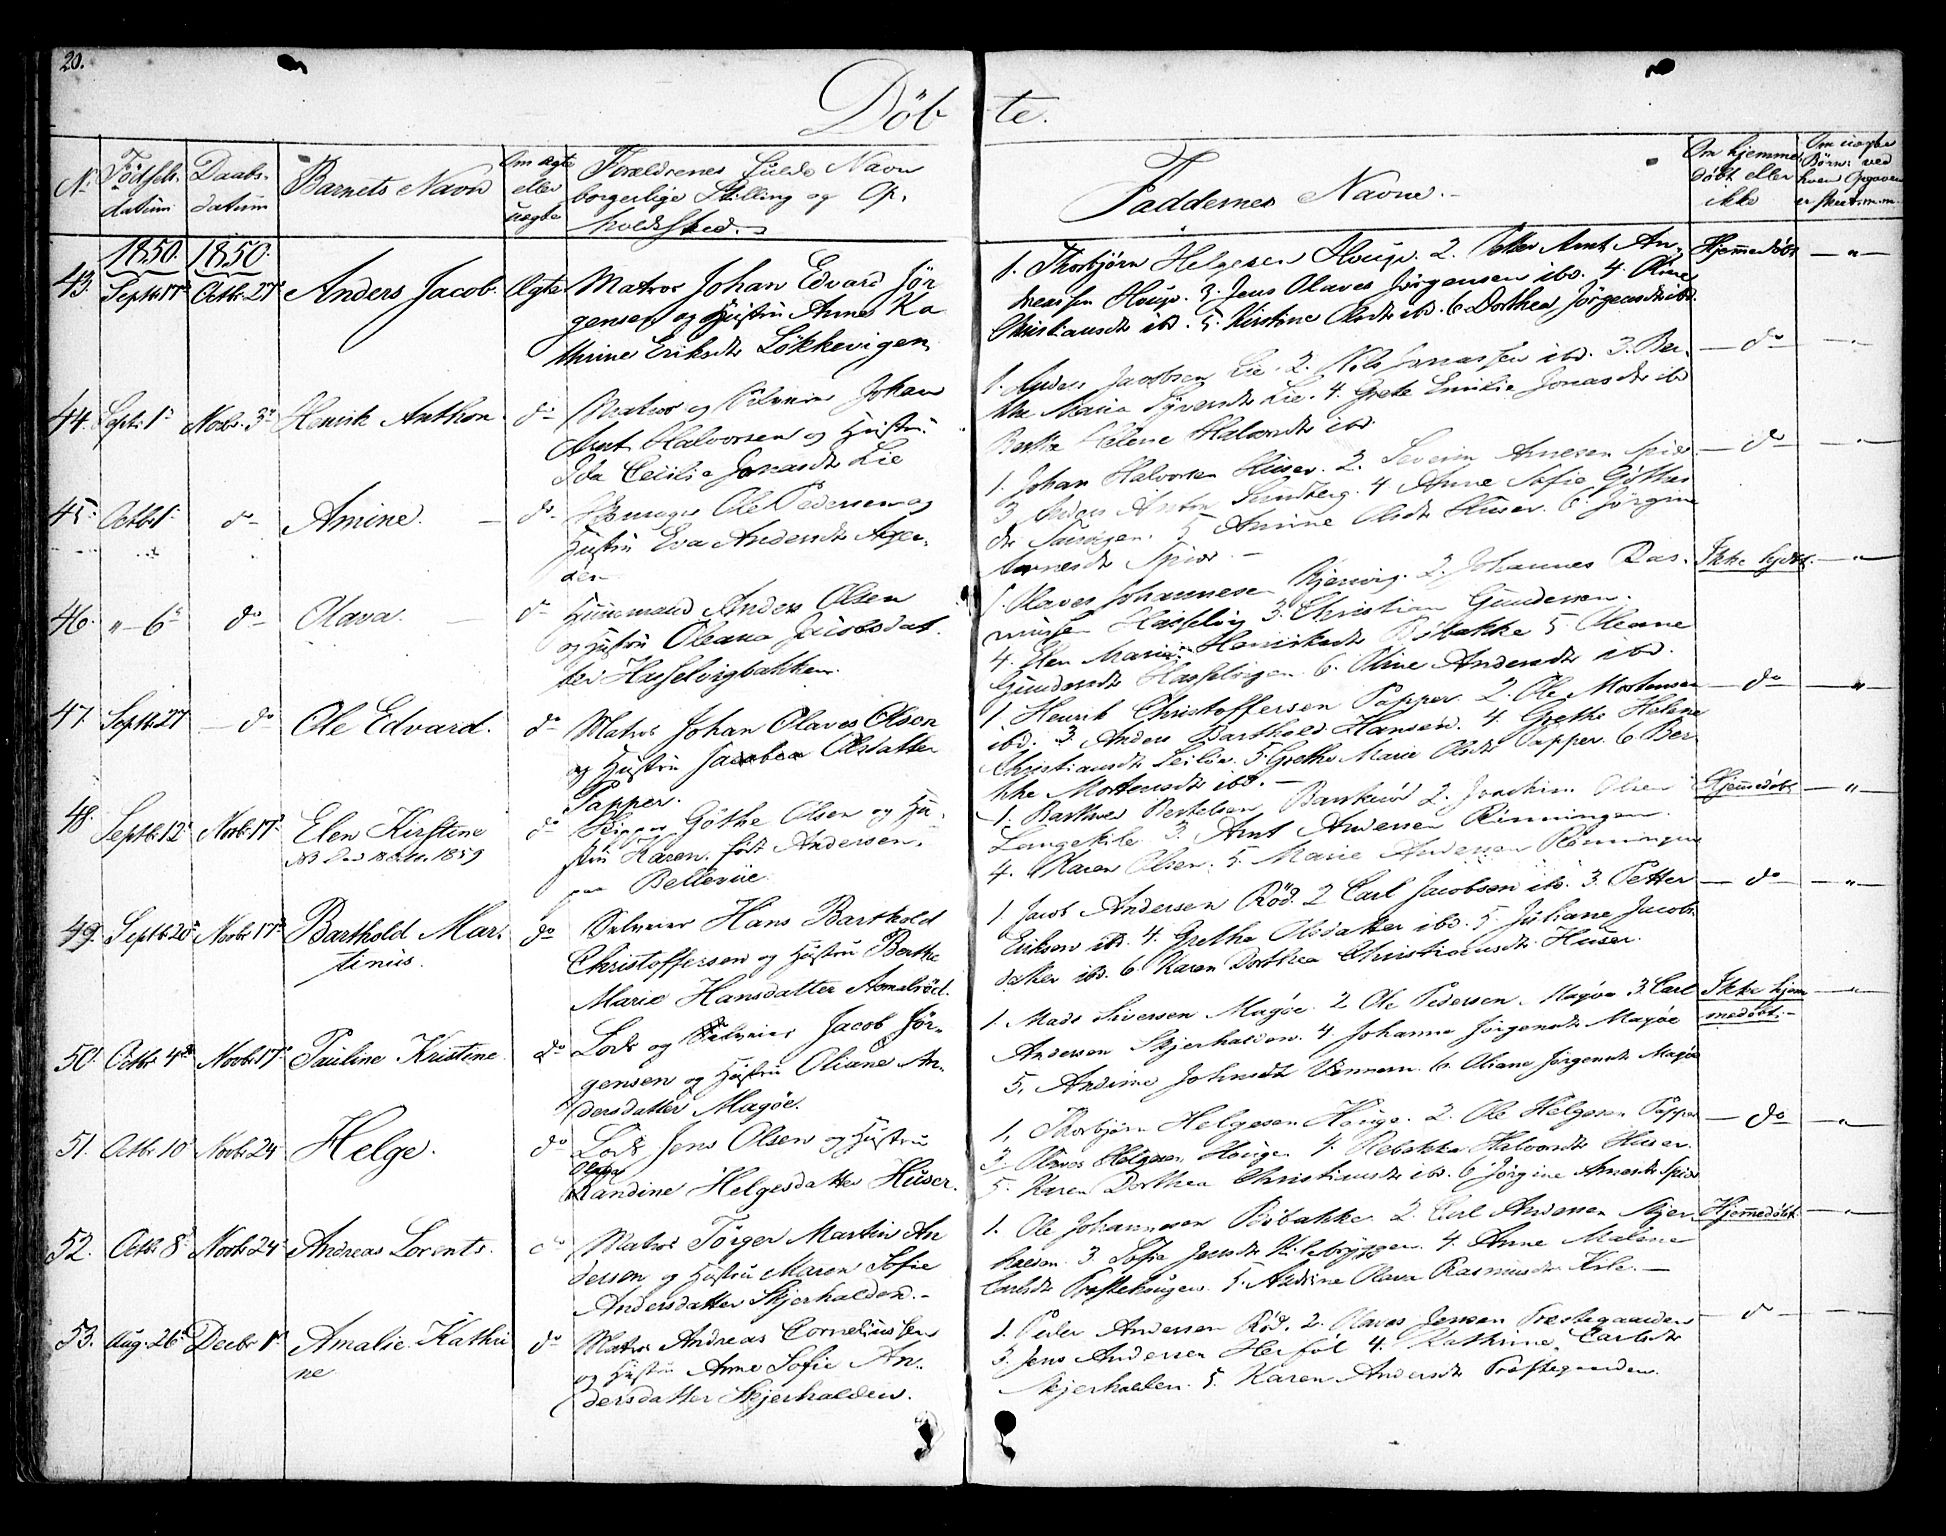 20.
Döbte.
N.
Födsels-
datum
Daabs-
datum
Barnets Navn
Om ægte
eller
uægte
Forældrenes fulde Navn
borgerlige Stilling og Op-
holdssted.
Faddernes Navne.
Om hjemme-
döbt eller
ikke
1850. 1850.
43. Septbr 17 Octbr 27 Anders Jacob. Ægte Matros Johan Edvard Jör
gensen og Hustru Anne Ka
thrine Eriksdtr Lökkevigen
1. Thorbjörn Helgesen Houge. 2. Petter Arnt An-
dreassen Houge. 3. Jens Olaves Jörgensen ibd. 4. Oline
Christiansdtr ibd. 5. Kirstine Olsdtr ibd. 6 Dorthea Jörgensdtr ibd.
Hjemmedöbt — " —
44. Septr 1 Novbr 3 Henrik Anthon. do Matros og Selveier Johan
Arnt Halvorsen og Hustru
Ida Cecilie Jonasdtr Lie
1. Anders Jacobsen Lie. 2. Nils Jonassen ibd. 3. Ber-
the Maria Syversdtr Lie. 4. Grete Emilie Jonasdtr ibd
Berthe Helene Halvorsdtr ibd.
— do — "
45. Octbr 1 do Amine. — do Ole Pedersen og
Hustru Eva Andersdtr
1. Johan Halvorsen Huser. 2. Severin Arnesen Spidr
3 Anders Anton Sundberg. 4 Anne Sofie
5 Amine Olsdtr Huser. 6 Jörgine
Arnesdtr Spidr. —
— do — "
46. " - 6 do Olava. — do Huusmand Anders Olsen
og Hustru Oleana Jacobsdat-
ter Hasselvigbakken.
1. Olaves Johannesen 2. Johannes Ras-
mussen Hasselvig 3. Christian Gundersen.
4. Elen Marie Henriksdtr Böbakke 5 Oleane
Gundersdtr Hasselvigen. 6. Oline Andersdtr ibd.
Ikke hjdbt. — " —
47. Septbr 27 — do Ole Edvard. do Matros Johan Olaves Olsen
og Hustru Jacobea Olsdatter
Papper.
1. Henrik Christoffersen Papper. 2. Ole Mortensen
ibd. 3. Anders Barthold Hansen. 4. Grethe Helene
Christiansdtr Seilöe. 5 Grethe Marie Olsdtr Papper. 6 Ber-
the Mortensdtr ibd. —
— do — " —
48. Septbr 12 Novbr 17 Elen Kirstine do Skipper Göthe Olsen og Hu-
stru Karen, född Andersen,
paa Bellevüe.
1859
1. Barthus Bertelsen 2. Joachim Olsen
Langekile 3. Arnt Andersen Rönningen.
4. Karen Olsen. 5. Marie Andersen Rönningen
Hjemmedöbt — " —
49. Septbr 20 Novbr 17 Barthold Mar-
tinus.
do Selveier Hans Barthold
Christoffersen og Hustru Berthe
Marie Hansdatter Asmalröd.
1. Jacob Andersen Röd. 2 Carl Jacobsen ibd. 3. Petter
Eriksen ibd. 4. Grethe Olsdatter ibd. 5 Juliane Jacobs-
datter ibd. 6 Karen Dorthea Christiansdtr Huser.
— do — " —
50. Octbr 4 Novbr 17 Pauline Kristine. do Lods og Selveier Jacob Jör-
gensen og Hustru Oliane An-
dersdatter Magöe.
1. Mads Siversen Magöe. 2 Ole Pedersen Magöe 3. Carl
Andersen Skjerhalden. 4 Johanne Jörgensdtr Magöe
5. Andine Johnsdtr 6. Oliane Jörgensdtr Magöe
Ikke hjem
medöbt. — " —
51. Octbr 10 Novbr 24 Helge. do Lods Jens Olsen og Hustru
Randine Helgesdatter Huser.
1. Thorbjörn Helgesen Houge. 2. Ole Helgesen Papper
3. Olaves Helgesen Hougen 4. Rebekka Halvorsdtr Huser.
5. Karen Dorthea Christiansdtr ibd. 6 Jörgine Arnesdtr Spidr
— do — "
52. Octbr 8 Novbr 24 Andreas Lorents. do Matros Törger Martin An
dersen og Hustru Maren Sofie
Andersdatter Skjerhalden. —
1. Ole Johannesen Böbakke. 2. Carl Andersen Skjer-
halden. 3 Sofie Jensdtr 4. Anne Malene
Carlsdtr 5. Andrine Olava Rasmusdtr —
Hjemmedöbt. — "
53. Aug. 26 Decbr 1 Amalie Kathri
ne
do Matros Andreas Corneliussen
og Hustru Anne Sofie An-
dersdatter Skjerhalden.
1. Peder Andersen Röd. 2. Olaves Jensen Præstegaarden
3. Jens Andersen Herföl 4. Kathrine Carlsdtr
Skjerhallen. 5. Karen Andersdtr Præstegaarden.
— do